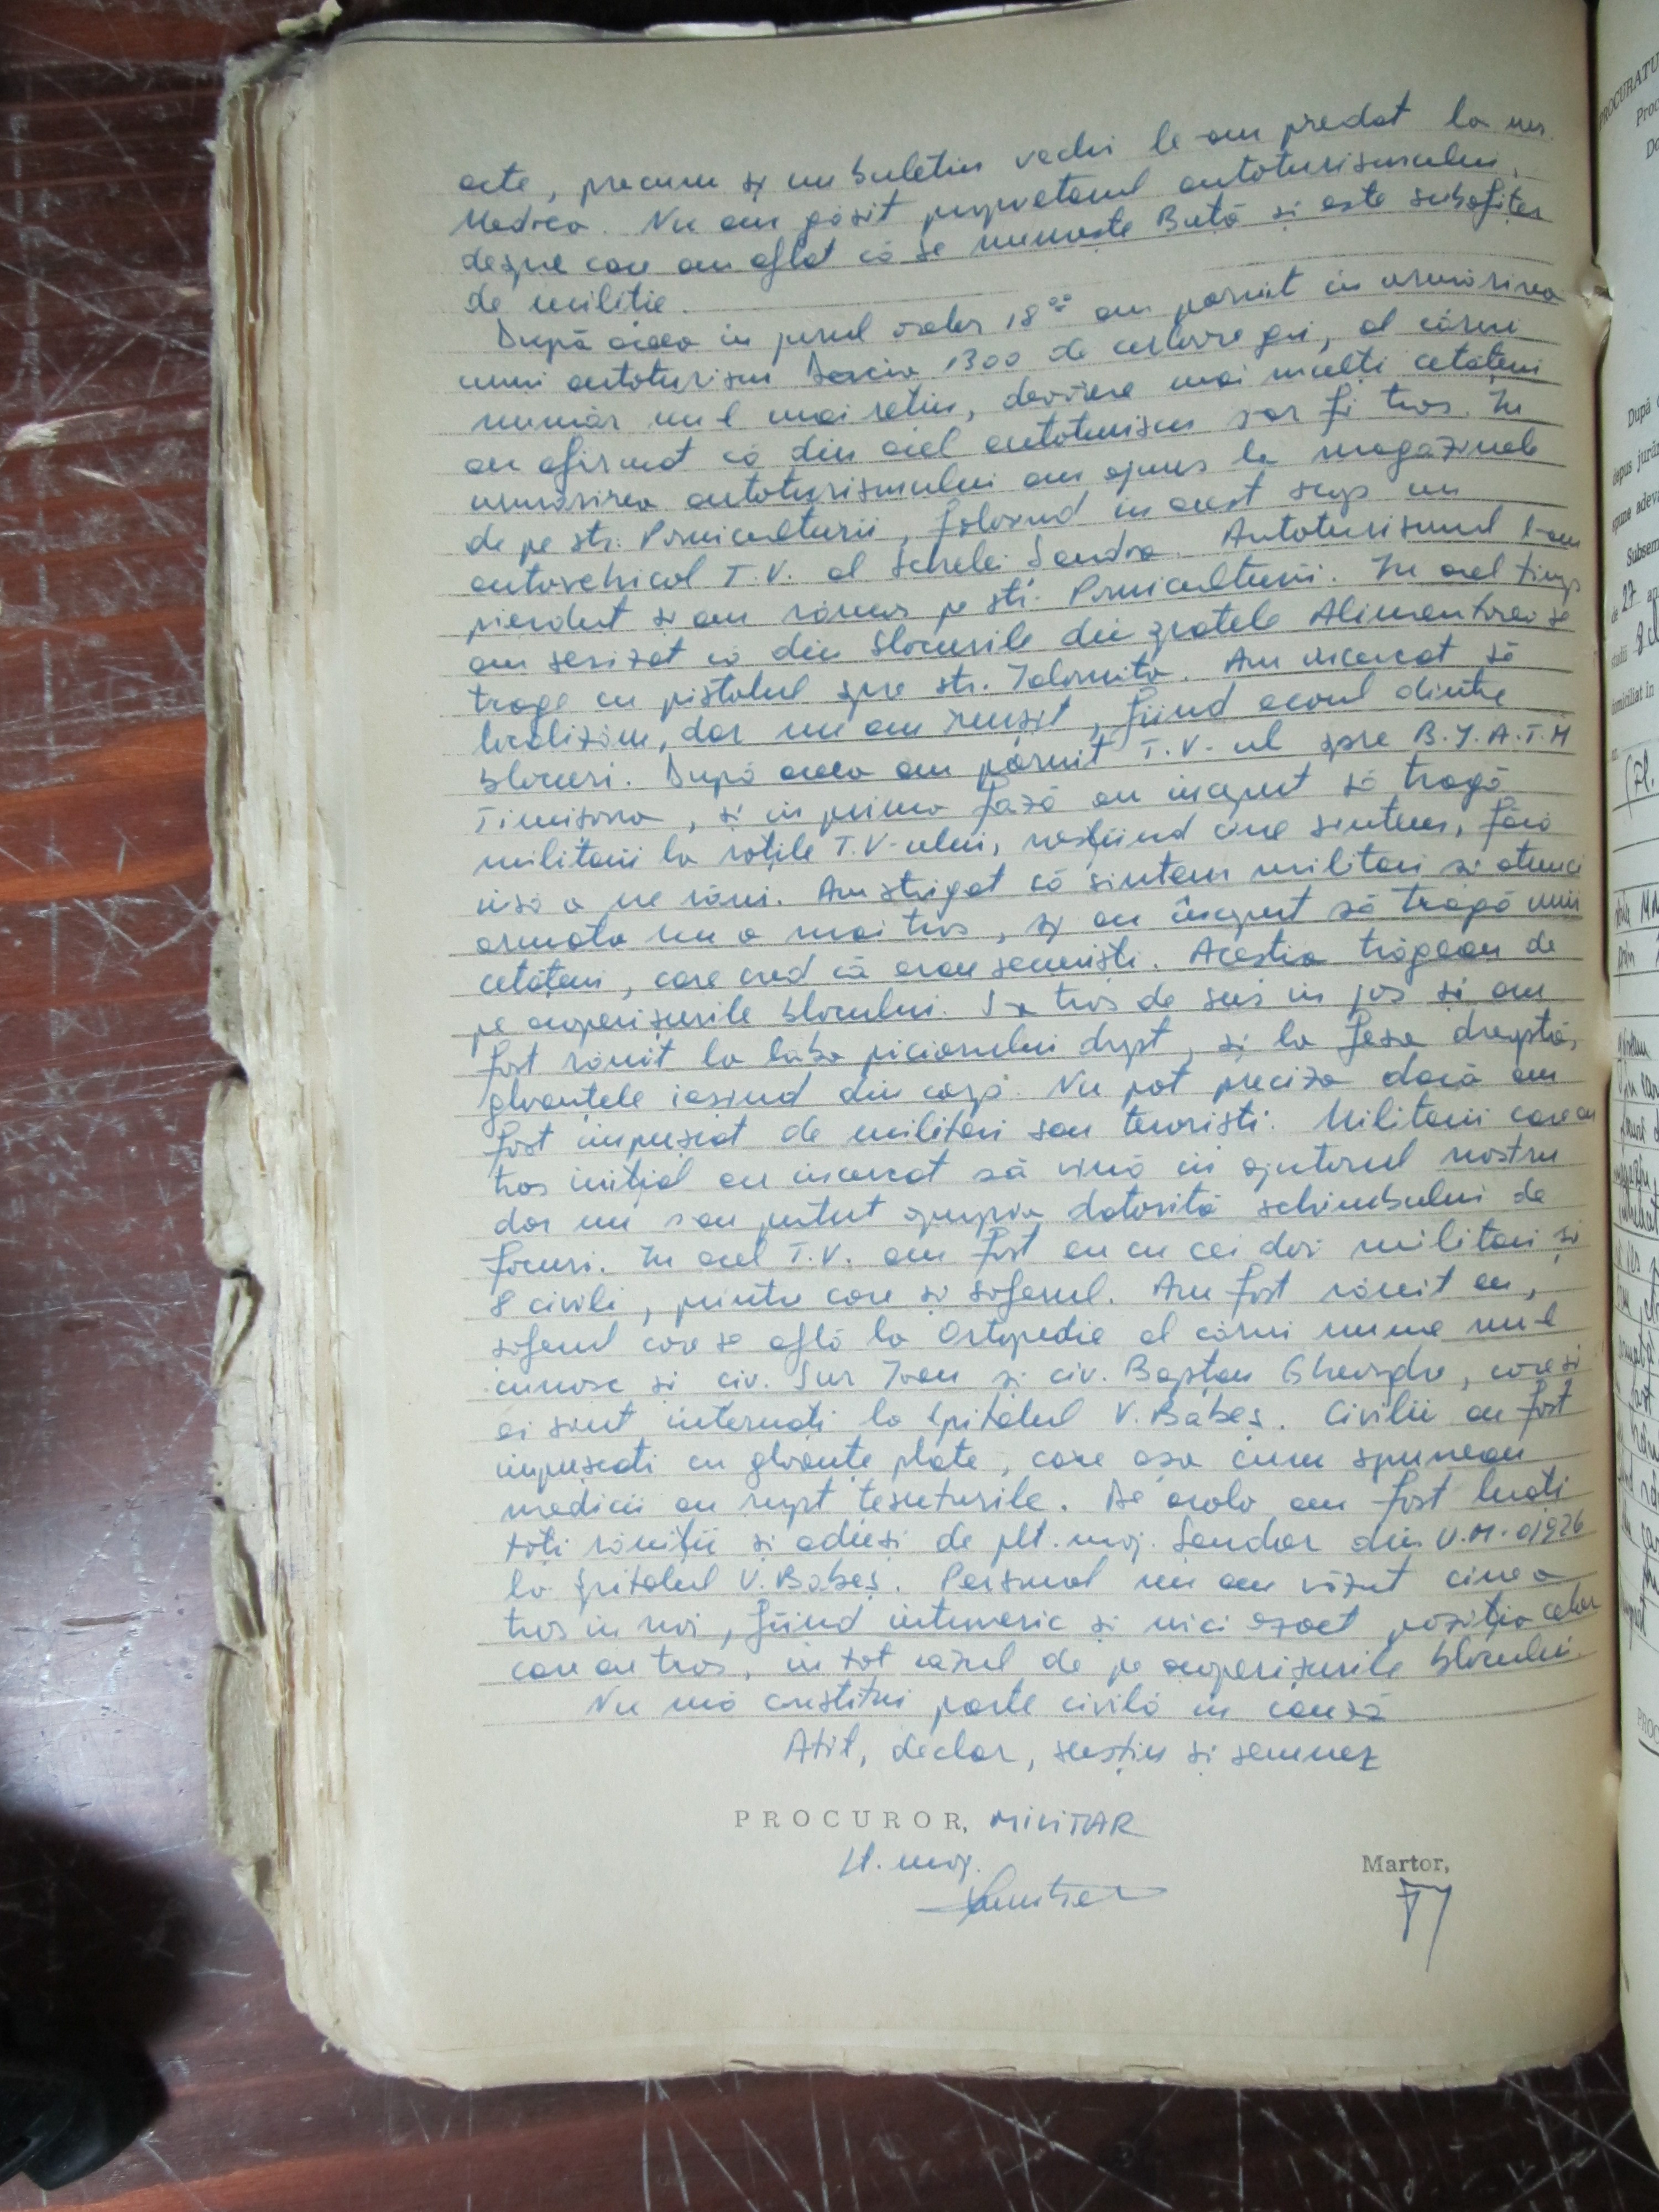 acte, precum și un buletin vechi le-am predat la
Medica. Nu am găsit proprietarul autoturismului,
despre care am aflat că se numește Bută și este subofițer
de miliție.
După aceea în jurul orelor 18⁰⁰ am pornit în urmărirea
unui autoturism Dacia 1300 de culoare gri, al cărui
număr nu-l mai rețin, deoarece mai mulți cetățeni
au afirmat că din acel autoturism s-ar fi tras. În
urmărirea autoturismului am ajuns la magazinele
de pe str. Pomiculturii, folosind în acest scop un
autovehicol T.V. al Schelei Sandra. Autoturismul l-am
pierdut și am rămas pe str. Pomiculturii. În acel timp
am sesizat că din blocurile din spatele Alimentarei se
trage cu pistolul spre str. Ialomița. Am încercat să
localizăm, dar nu am reușit, fiind ecoul dintre
blocuri. După aceea am pornit T.V.-ul spre B.J.A.T.M
Timișoara, și în prima fază au început să tragă
militarii la roțile T.V-ului, neștiind cine sîntem, fără
însă a ne răni. Am strigat că sîntem militari și atunci
armata nu a mai tras, și au început să tragă unii
cetățeni, care cred că erau securiști. Aceștia trăgeau de
pe acoperișurile blocului. S-a tras de sus în jos și am
fost rănit la laba piciorului drept, și la fesa dreaptă,
gloanțele ieșind din corp. Nu pot preciza dacă am
fost împușcat de militari sau teroriști. Militarii care au
tras inițial au încercat să vină în ajutorul nostru
dar nu s-au putut apropia datorită schimbului de
focuri. În acel T.V. am fost eu cu cei doi militari și
8 civili, printre care și șoferul. Am fost rănit eu,
șoferul care se află la Ortopedie al cărui nume nu-l
cunosc și civ. Sur Ioan și civ. Baștan Gheorghe, care și
ei sînt internați la Spitalul V. Babeș. Civilii au fost
împușcați cu gloanțe plate, care așa cum spuneau
medicii au rupt țesuturile. De acolo am fost luați
toți răniții și aduși de plt. maj. Sandor din U.M. 01926
la Spitalul V. Babeș. Personal nu am văzut cine a
tras în noi, fiind întuneric și nici exact poziția celor
care au tras, în tot cazul de pe acoperișurile blocului.
Nu mă constitui parte civilă în cauză
Atît, declar, susțin și semnez
PROCUROR, MILITAR
Lt. maj.
Martor,